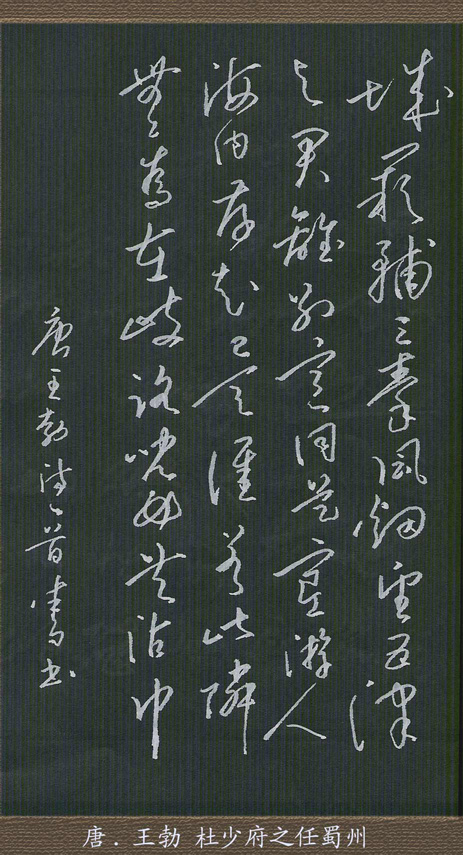 城闕輔三秦風烟望五津
与君離別意同是宦游人
海内存知己天涯若比隣
無為在歧路児女共沾巾
唐王勃詩一首
唐．王勃 杜少府之任蜀州